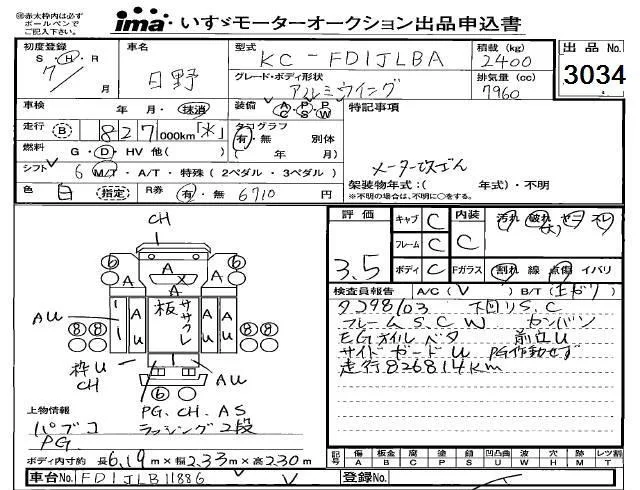 ㊟赤太枠内は必ず
ボールペンで
ご記入下さい。
ima いすゞモーターオークション出品申込書
初度登録
S・H・R
7/ 月
車名
日野
型式
KC-FD1JLBA
積載 (kg)
2400
出品No.
3034
グレード・ボディ形状
アルミウイング
排気量 (cc)
7960
車検 年・月・抹消
装備 A/C P/S P/W
特記事項
走行 B 827,000km「水」
タコグラフ
有・無 別体
( 年 月)
燃料 G・D・HV 他( )
シフト 6 M/T・A/T・特殊(2ペダル・3ペダル)
色 白 指定 R券 有・無 6710 円
メーター改ざん
架装物年式:( 年式)・不明
※不明の場合は、不明に○をする。
評価
3.5
キャブ C
フレーム C
ボディ C
内装
C
汚れ 破れ ヤニ スレ
Fガラス 割れ 線 点傷 イバリ
検査員報告 A/C(V) B/T(
タコ98/03 下回りS.C
フレームS.C W カンバン
EGオイルベタ 前立U
サイドガードU PG作動せず
走行826814km
CH
A
A
A
A
6
6
AU
板ササクレ
AU
AU
8 8
8 8
枠U
CH
AU
6
上物情報
パブコ
PG
PG.CH.AS
ラッシング2段
ボディ内寸約 長6.19m×幅2.33m×高2.30m
記号 傷A 板金B 腐C 塗P 錆S 凹凸曲U 波W 穴H 跡M レツ割T
車台No. FD1JLB11886
登録No.